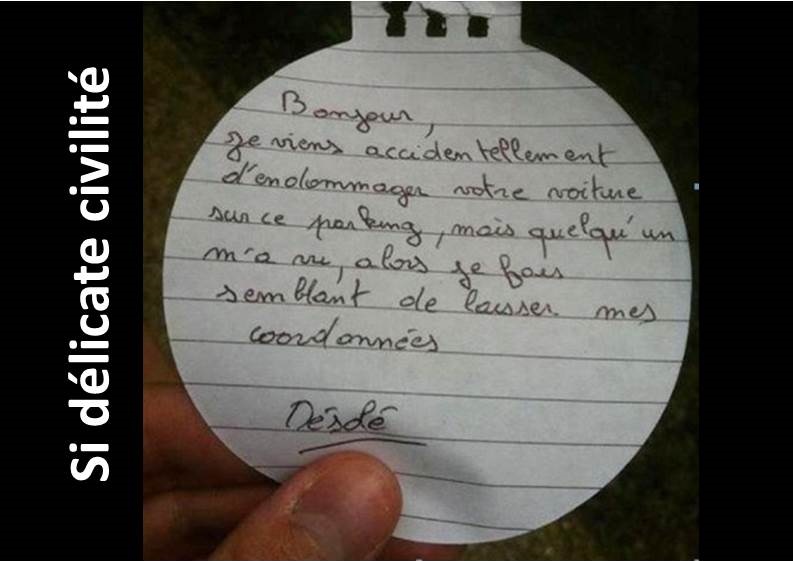 Si délicate civilité
Bonjour,
je viens accidentellement
d'endommager votre voiture
sur ce parking, mais quelqu'un
m'a vu, alors je fais
semblant de laisser mes
coordonnées
Désdé